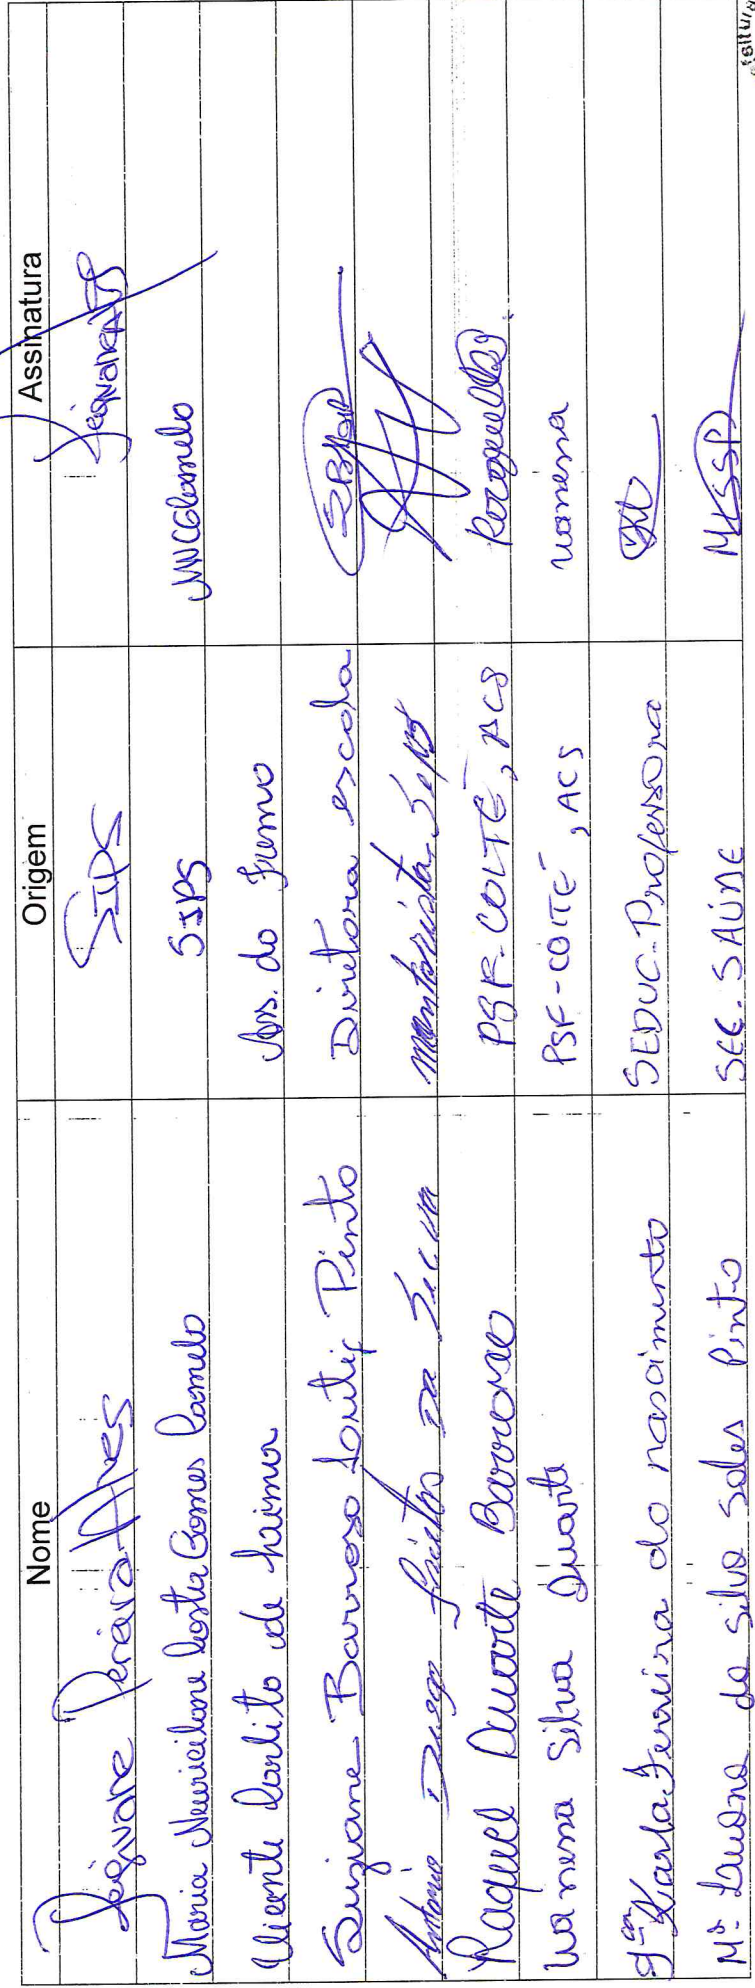 Nome Origem Assinatura
Jeigivane Pereira Alves SIPS
Maria Neuricilane Costa Gomes Camelo SIPS MNCGCamelo
Vicente Carlito de Lima Ass. do Fumo
Suziane Barroso Pinto Diretora escola
Antonio Diego da Silva Motorista
Raquel Duarte Barroso PSF-COITÉ, ACS Raquel
Vanessa Silva Duarte PSF-COITÉ, ACS Vanessa
Karla Ferreira do nascimento SEDUC-Professora
Mª Lausna da Silva Sales Pinto SEC. SAÚDE MLSSP